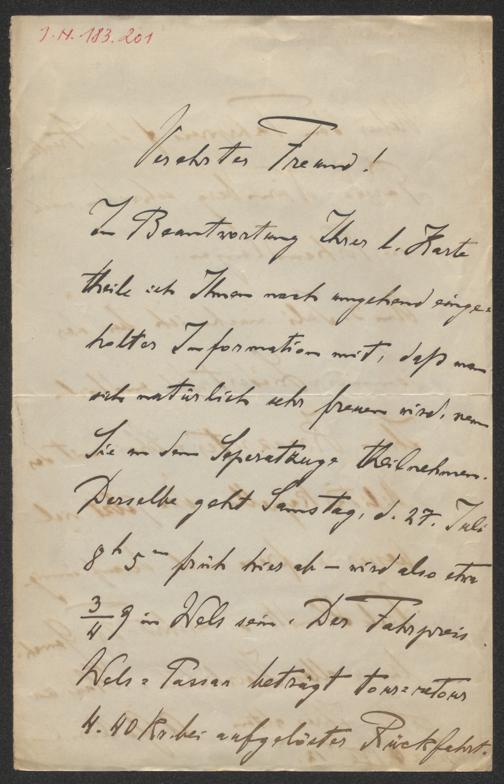 J. N. 183.201
Verehrter Freund!
In Beantwortung Ihrer l. Karte
theile ich Ihnen nach umgehend einge-
holter Information mit, daß man
sich natürlich sehr freuen wird, wenn
Sie an dem Seperatzuge theilnehmen.
Derselbe geht Samstag, d. 27. Juli
8 h 5 m früh hier ab – wird also etwa
3/4 9 in Wels sein. Der Fahrpreis
Wels = Passau beträgt tour = retour
4.40 Kr. bei aufgelöster Rückfahrt.